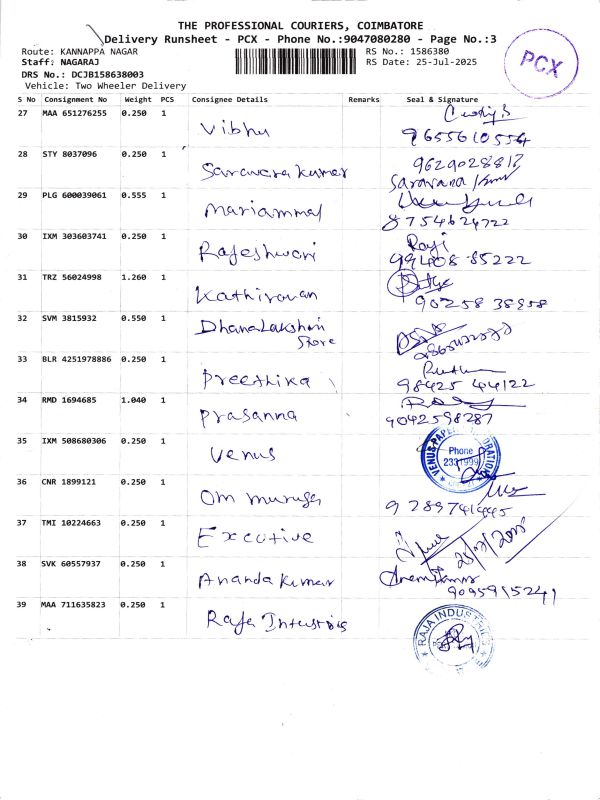 THE PROFESSIONAL COURIERS, COIMBATORE
Delivery Runsheet - PCX - Phone No.:9047080280 - Page No.:3
Route: KANNAPPA NAGAR
RS No.: 1586380
Staff: NAGARAJ
RS Date: 25-Jul-2025
PCX
DRS No.: DCJB158638003
Vehicle: Two Wheeler Delivery
S No Consignment No Weight PCS Consignee Details Remarks Seal & Signature
27 MAA 651276255 0.250 1 Vibhu
9655610554
28 STY 8037096 0.250 1 Saravana Kumar
9629028817
Saravana Kumar
29 PLG 600039061 0.555 1 Mariammal
8754624722
30 IXM 303603741 0.250 1 Rajeshwari
Raji
99408 85222
31 TRZ 56024998 1.260 1 Kathiravan
90258 38858
32 SVM 3815932 0.550 1 DhanaLakshmi
Store
33 BLR 4251978886 0.250 1 Preethika
98425 44122
34 RMD 1694685 1.040 1 Prasanna
9042598287
35 IXM 508680306 0.250 1 Venus
Phone
36 CNR 1899121 0.250 1 Om muruga
9289741445
37 TMI 10224663 0.250 1 Excutive
25/7/2025
38 SVK 60557937 0.250 1 Ananda Kumar
9095915241
39 MAA 711635823 0.250 1 Raja Intustris
RAJA INDUSTRIES